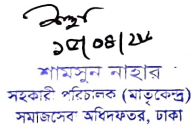 ১৫/০৪/২৪
শামসুন নাহার
সহকারী পরিচালক (মাতৃকেন্দ্র)
সমাজসেবা অধিদফতর, ঢাকা